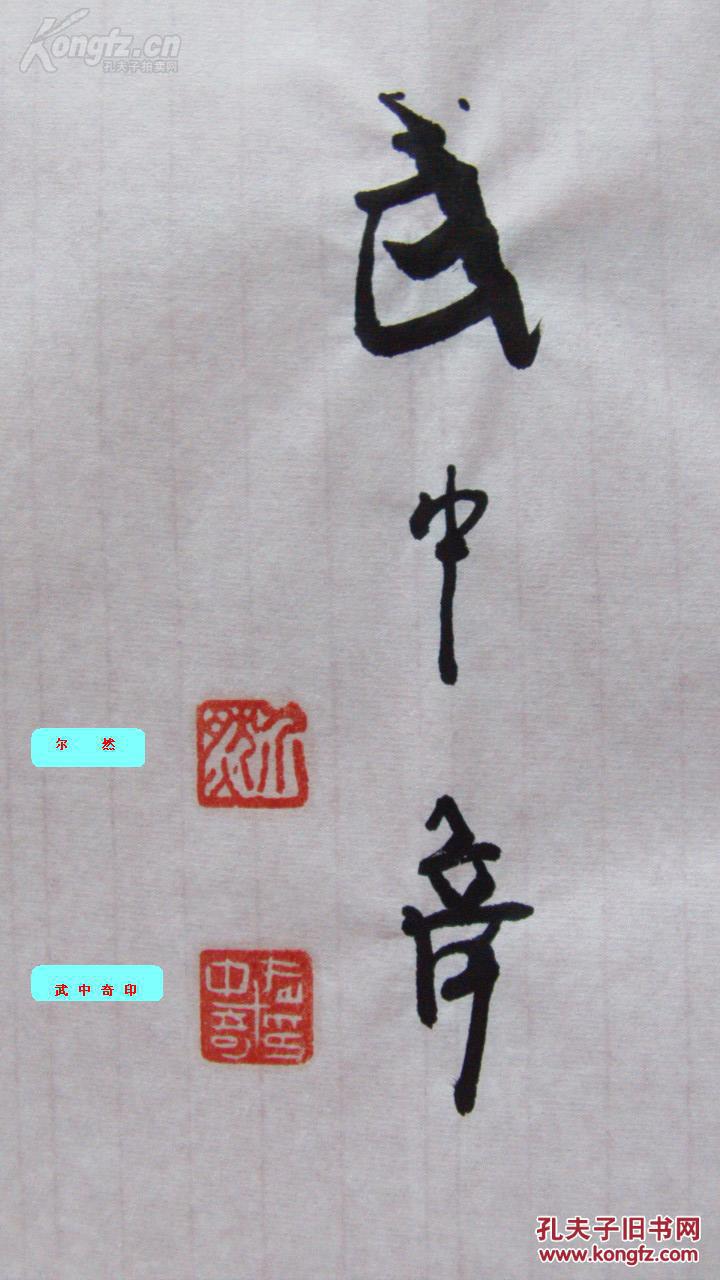 Kongfz.cn
孔夫子拍卖网
武中奇
尔 然
武中奇印
孔夫子旧书网
www.kongfz.com